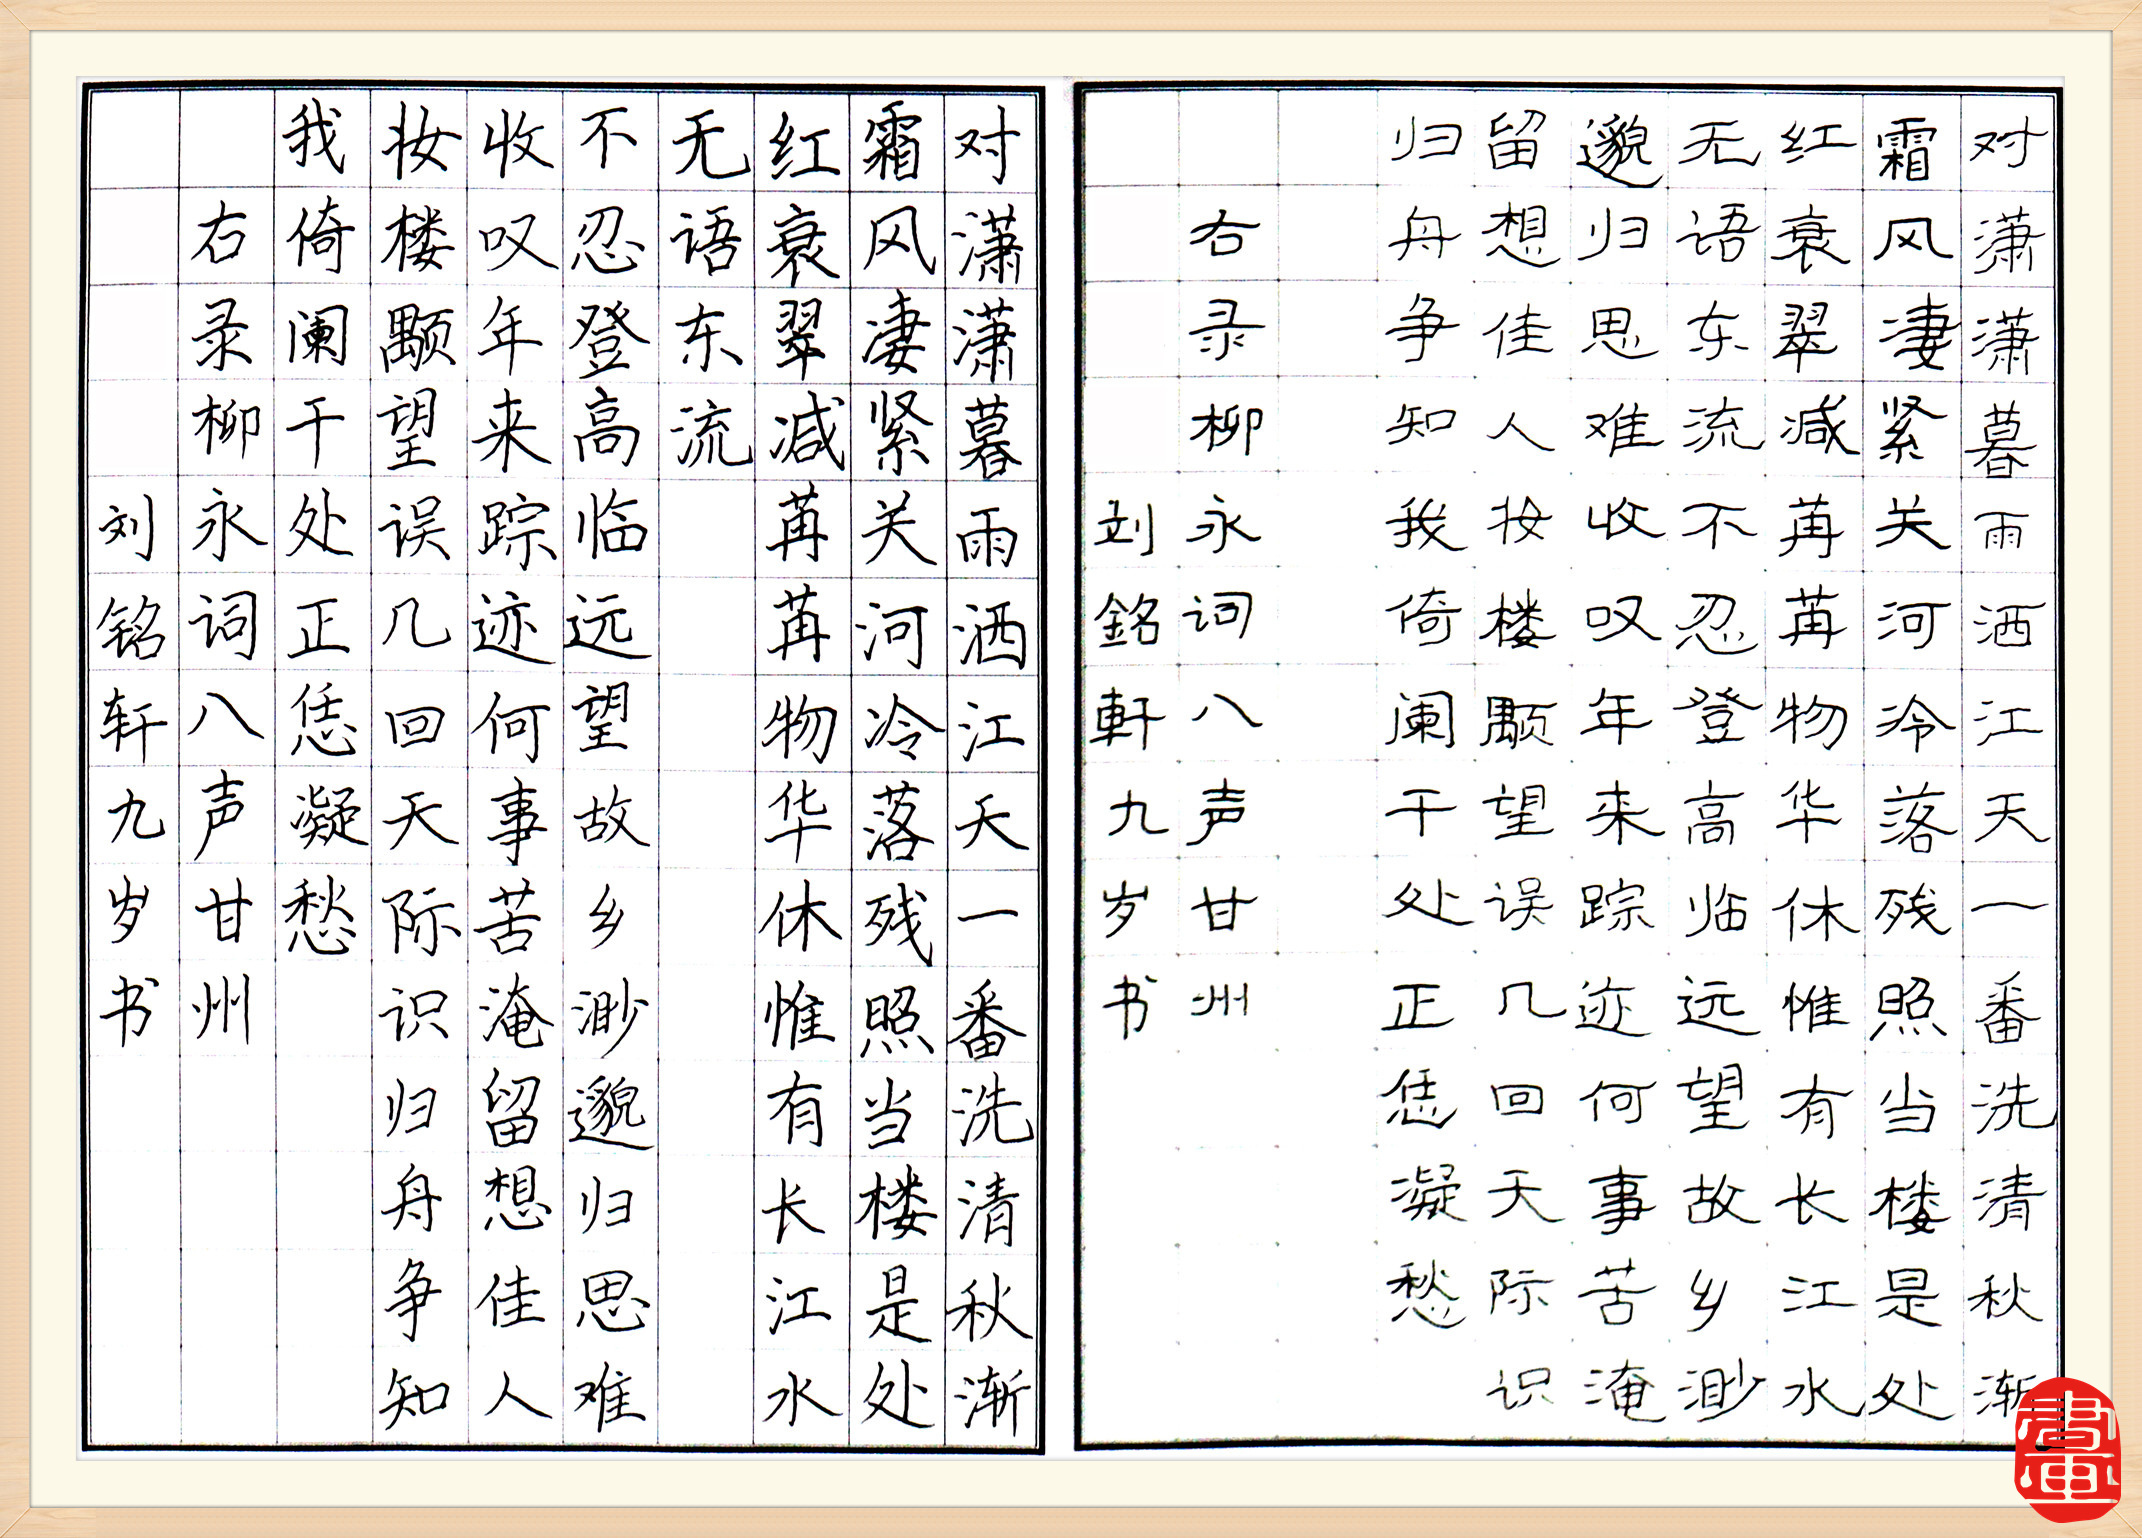 对潇潇暮雨洒江天一番洗清秋渐
霜风凄紧关河冷落残照当楼是处
红衰翠减苒苒物华休惟有长江水
无语东流不忍登高临远望故乡渺
邈归思难收叹年来踪迹何事苦淹
留想佳人妆楼颙望误几回天际识
归舟争知我倚阑干处正恁凝愁
右录柳永词八声甘州
刘銘軒九岁书
对潇潇暮雨洒江天一番洗清秋渐
霜风凄紧关河冷落残照当楼是处
红衰翠减苒苒物华休惟有长江水
无语东流
不忍登高临远望故乡渺邈归思难
收叹年来踪迹何事苦淹留想佳人
妆楼颙望误几回天际识归舟争知
我倚阑干处正恁凝愁
右录柳永词八声甘州
刘铭轩九岁书